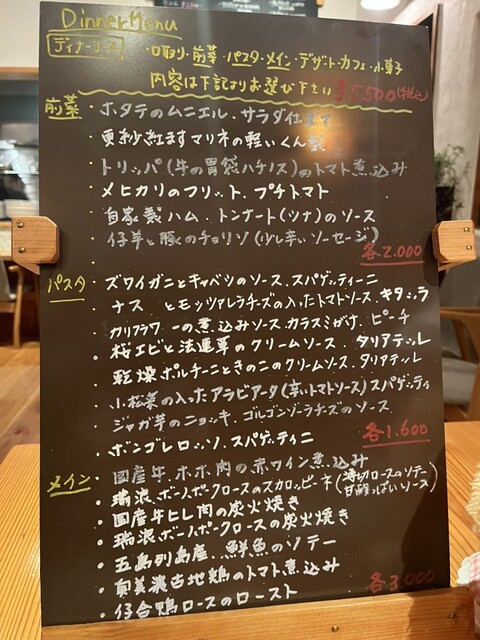 Dinner Menu
ディナーコース
・口取り・前菜・パスタ・メイン・デザート・カフェ・小菓子
内容は下記よりお選び下さい ¥5,500(税込)
前菜
・ホタテのムニエル、サラダ仕立て
・更紗紅ますマリネの軽いくん製
・トリッパ(牛の胃袋ハチノス)のトマト煮込み
・メヒカリのフリット、プチトマト
・自家製ハム、トンナート(ツナ)のソース
・仔羊と豚のチョリソ(少し辛いソーセージ)
各2,000
パスタ
・ズワイガニとキャベツのソース、スパゲッティーニ
・ナスとモッツァレラチーズの入ったトマトソース、キタッラ
・カリフラワーの煮込みソース、カラスミがけ、ピーチ
・桜エビと法蓮草のクリームソース、タリアテッレ
・乾燥ポルチーニときのこのクリームソース、タリアテッレ
・小松菜の入ったアラビアータ(辛いトマトソース)スパゲッティ
・ジャガ芋のニョッキ、ゴルゴンゾーラチーズのソース
・ボンゴレロッソ、スパゲッティーニ
各1,600
メイン
・国産牛、ホホ肉の赤ワイン煮込み
・瑞浪ボーノポークロースのスカロッピーネ(薄切ロースのソテー
甘酸っぱいソース)
・国産牛ヒレ肉の炭火焼き
・瑞浪ボーノポークロースの炭火焼き
・五島列島産、鮮魚のソテー
・奥美濃古地鶏のトマト煮込み
各3,000
・仔合鴨ロースのロースト